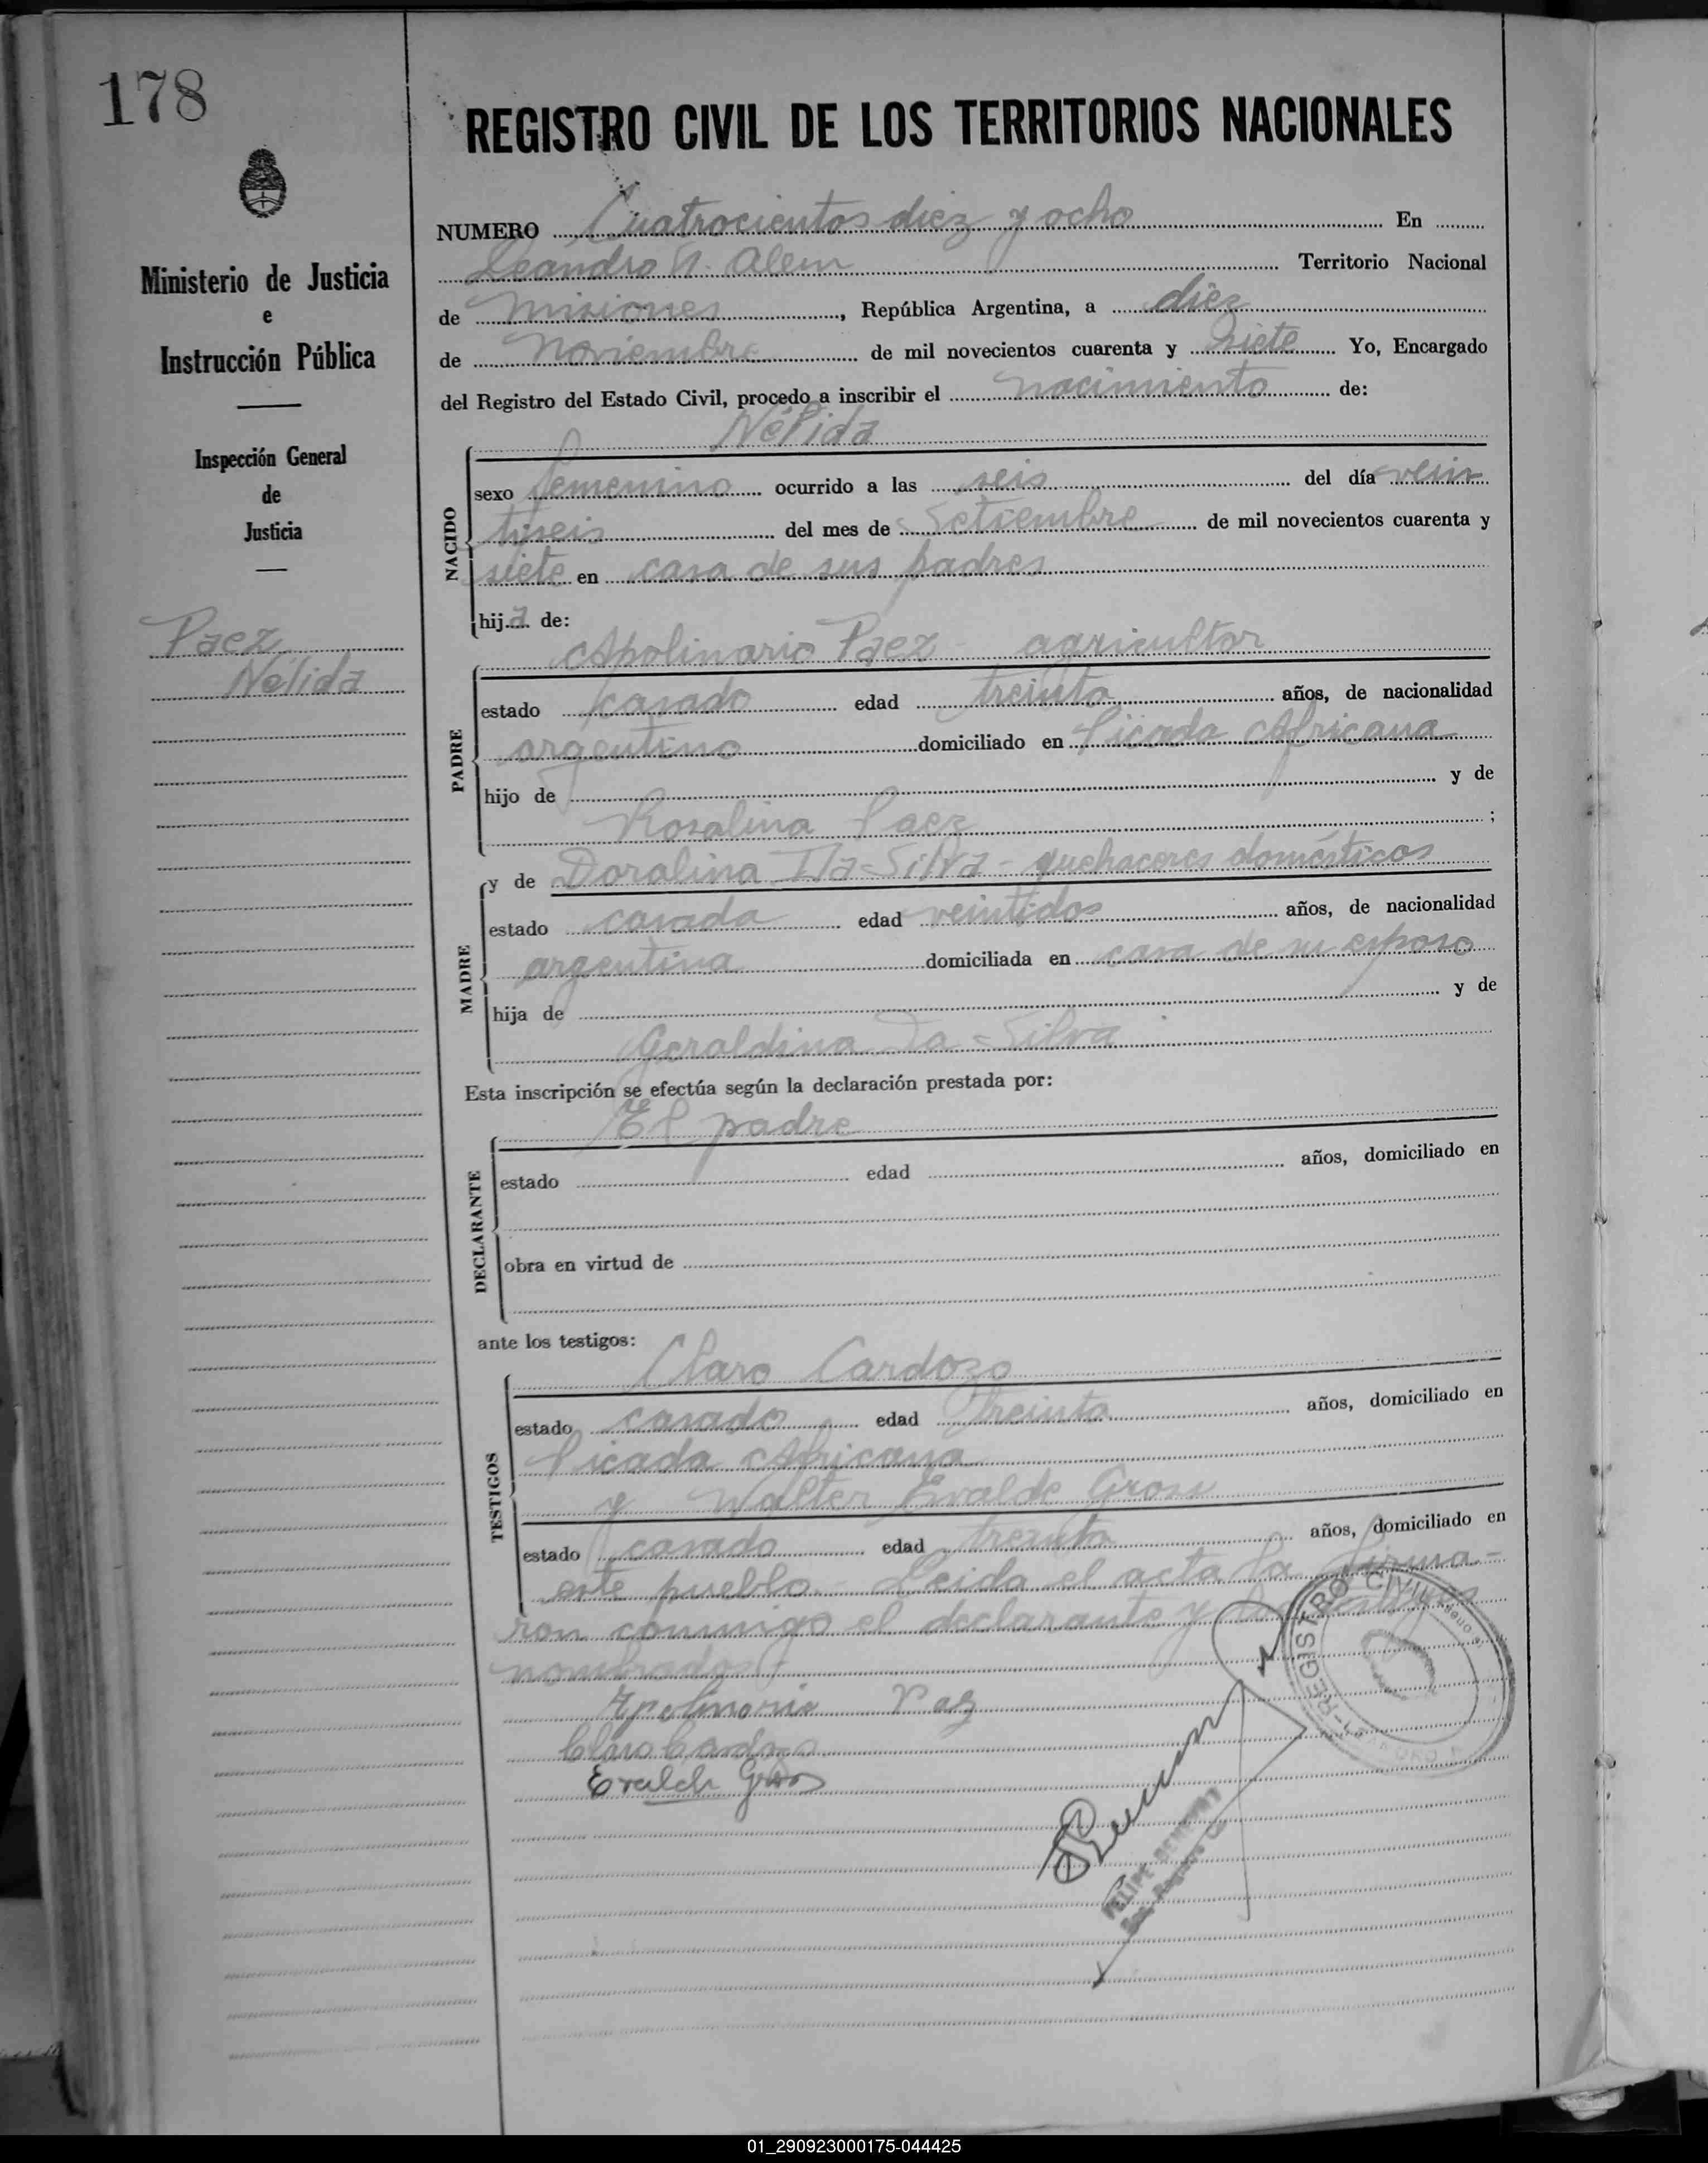 178
REGISTRO CIVIL DE LOS TERRITORIOS NACIONALES
NUMERO Cuatrocientos diez y ocho En
Leandro N. Alem Territorio Nacional
de Misiones, República Argentina, a diez
de Noviembre de mil novecientos cuarenta y Siete Yo, Encargado
del Registro del Estado Civil, procedo a inscribir el nacimiento de:
Nélida
Ministerio de Justicia
e
Instrucción Pública
Inspección General
de
Justicia
Paez
Nélida
NACIDO
sexo femenino ocurrido a las seis del día vein
tiseis del mes de Setiembre de mil novecientos cuarenta y
siete en casa de sus padres
hija de:
Apolinario Paez - agricultor
PADRE
estado casado edad treinta años, de nacionalidad
argentino domiciliado en Picada Africana
hijo de y de
Rosalina Paez ;
MADRE
y de Doralina Da Silva - quehaceres domésticos
estado casada edad veintidos años, de nacionalidad
argentina domiciliada en casa de su esposo
hija de y de
Geraldina Da Silva
Esta inscripción se efectúa según la declaración prestada por:
El padre
DECLARANTE
estado edad años, domiciliado en
obra en virtud de
ante los testigos:
Claro Cardozo
TESTIGOS
estado casado edad treinta años, domiciliado en
Picada Africana
y Walter Evaldo Gross
estado casado edad treinta años, domiciliado en
este pueblo - Leida el acta la firma-
ron conmigo el declarante y los testigos
nombrados
Apolinario Paez
Claro Cardozo
REGISTRO CIVIL
FELIPE
01_290923000175-044425